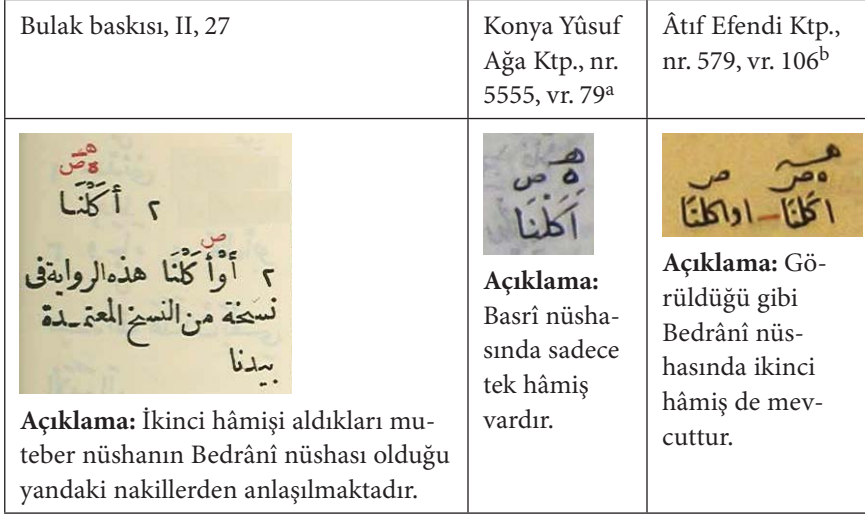 Bulak baskısı, II, 27
Konya Yûsuf
Ağa Ktp., nr.
5555, vr. 79a
Âtıf Efendi Ktp.,
nr. 579, vr. 106b
ه
ه ص
٢ أَكَلْنَا
ص
٢ أَوْأَكَلْنَا هذه الرواية فى
نسخة من النسخ المعتمدة
بيدنا
Açıklama: İkinci hâmişi aldıkları mu-
teber nüshanın Bedrânî nüshası olduğu
yandaki nakillerden anlaşılmaktadır.
ه
ه ص
أَكَلْنَا
Açıklama:
Basrî nüsha-
sında sadece
tek hâmiş
vardır.
ه
ه ص ص
اكلنا اواكلنا
Açıklama: Gö-
rüldüğü gibi
Bedrânî nüs-
hasında ikinci
hâmiş de mev-
cuttur.